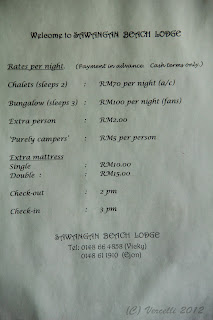 Welcome to SAWANGAN BEACH LODGE
Rates per night. (Payment in advance. Cash terms only.)
Chalets (sleeps 2) : RM70 per night (a/c)
Bungalow (sleeps 3) : RM100 per night (fans)
Extra person : RM2.00
'Purely campers' : RM5 per person
Extra mattress
Single : RM10.00
Double : : RM15.00
Check-out : 2 pm
Check-in : 3 pm
SAWANGAN BEACH LODGE
Tel: 0148 66 4858 (Vicky)
0146 61 1910 (Ejon)
(C) Vercitti 2012